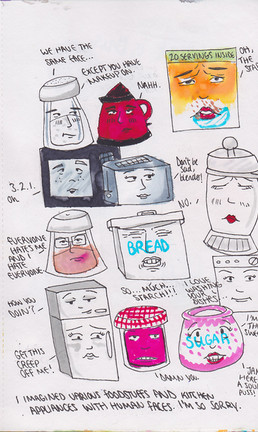 WE HAVE THE
SAME FACE...
EXCEPT YOU HAVE
MAKEUP ON.
NAHH.
20 SERVINGS INSIDE
OH,
THE
3.2.1.
Oh
Don't be
Sad,
NO.
EVERYONE
HATES ME
AND I
HATE
EVERYONE.
BREAD
SO... MUCH.
STARCH!!!
I LOVE
WASHING
YOUR
DISHES
HOW YOU
DOIN'?
GET THIS
CREEP
OFF ME!
DAMN YOU
SUGAR
I'M
HERE'S
A SOUR
PUSS!
I IMAGINED VARIOUS FOODSTUFFS AND KITCHEN
APPLIANCES WITH HUMAN FACES. I'M SO SORRY.